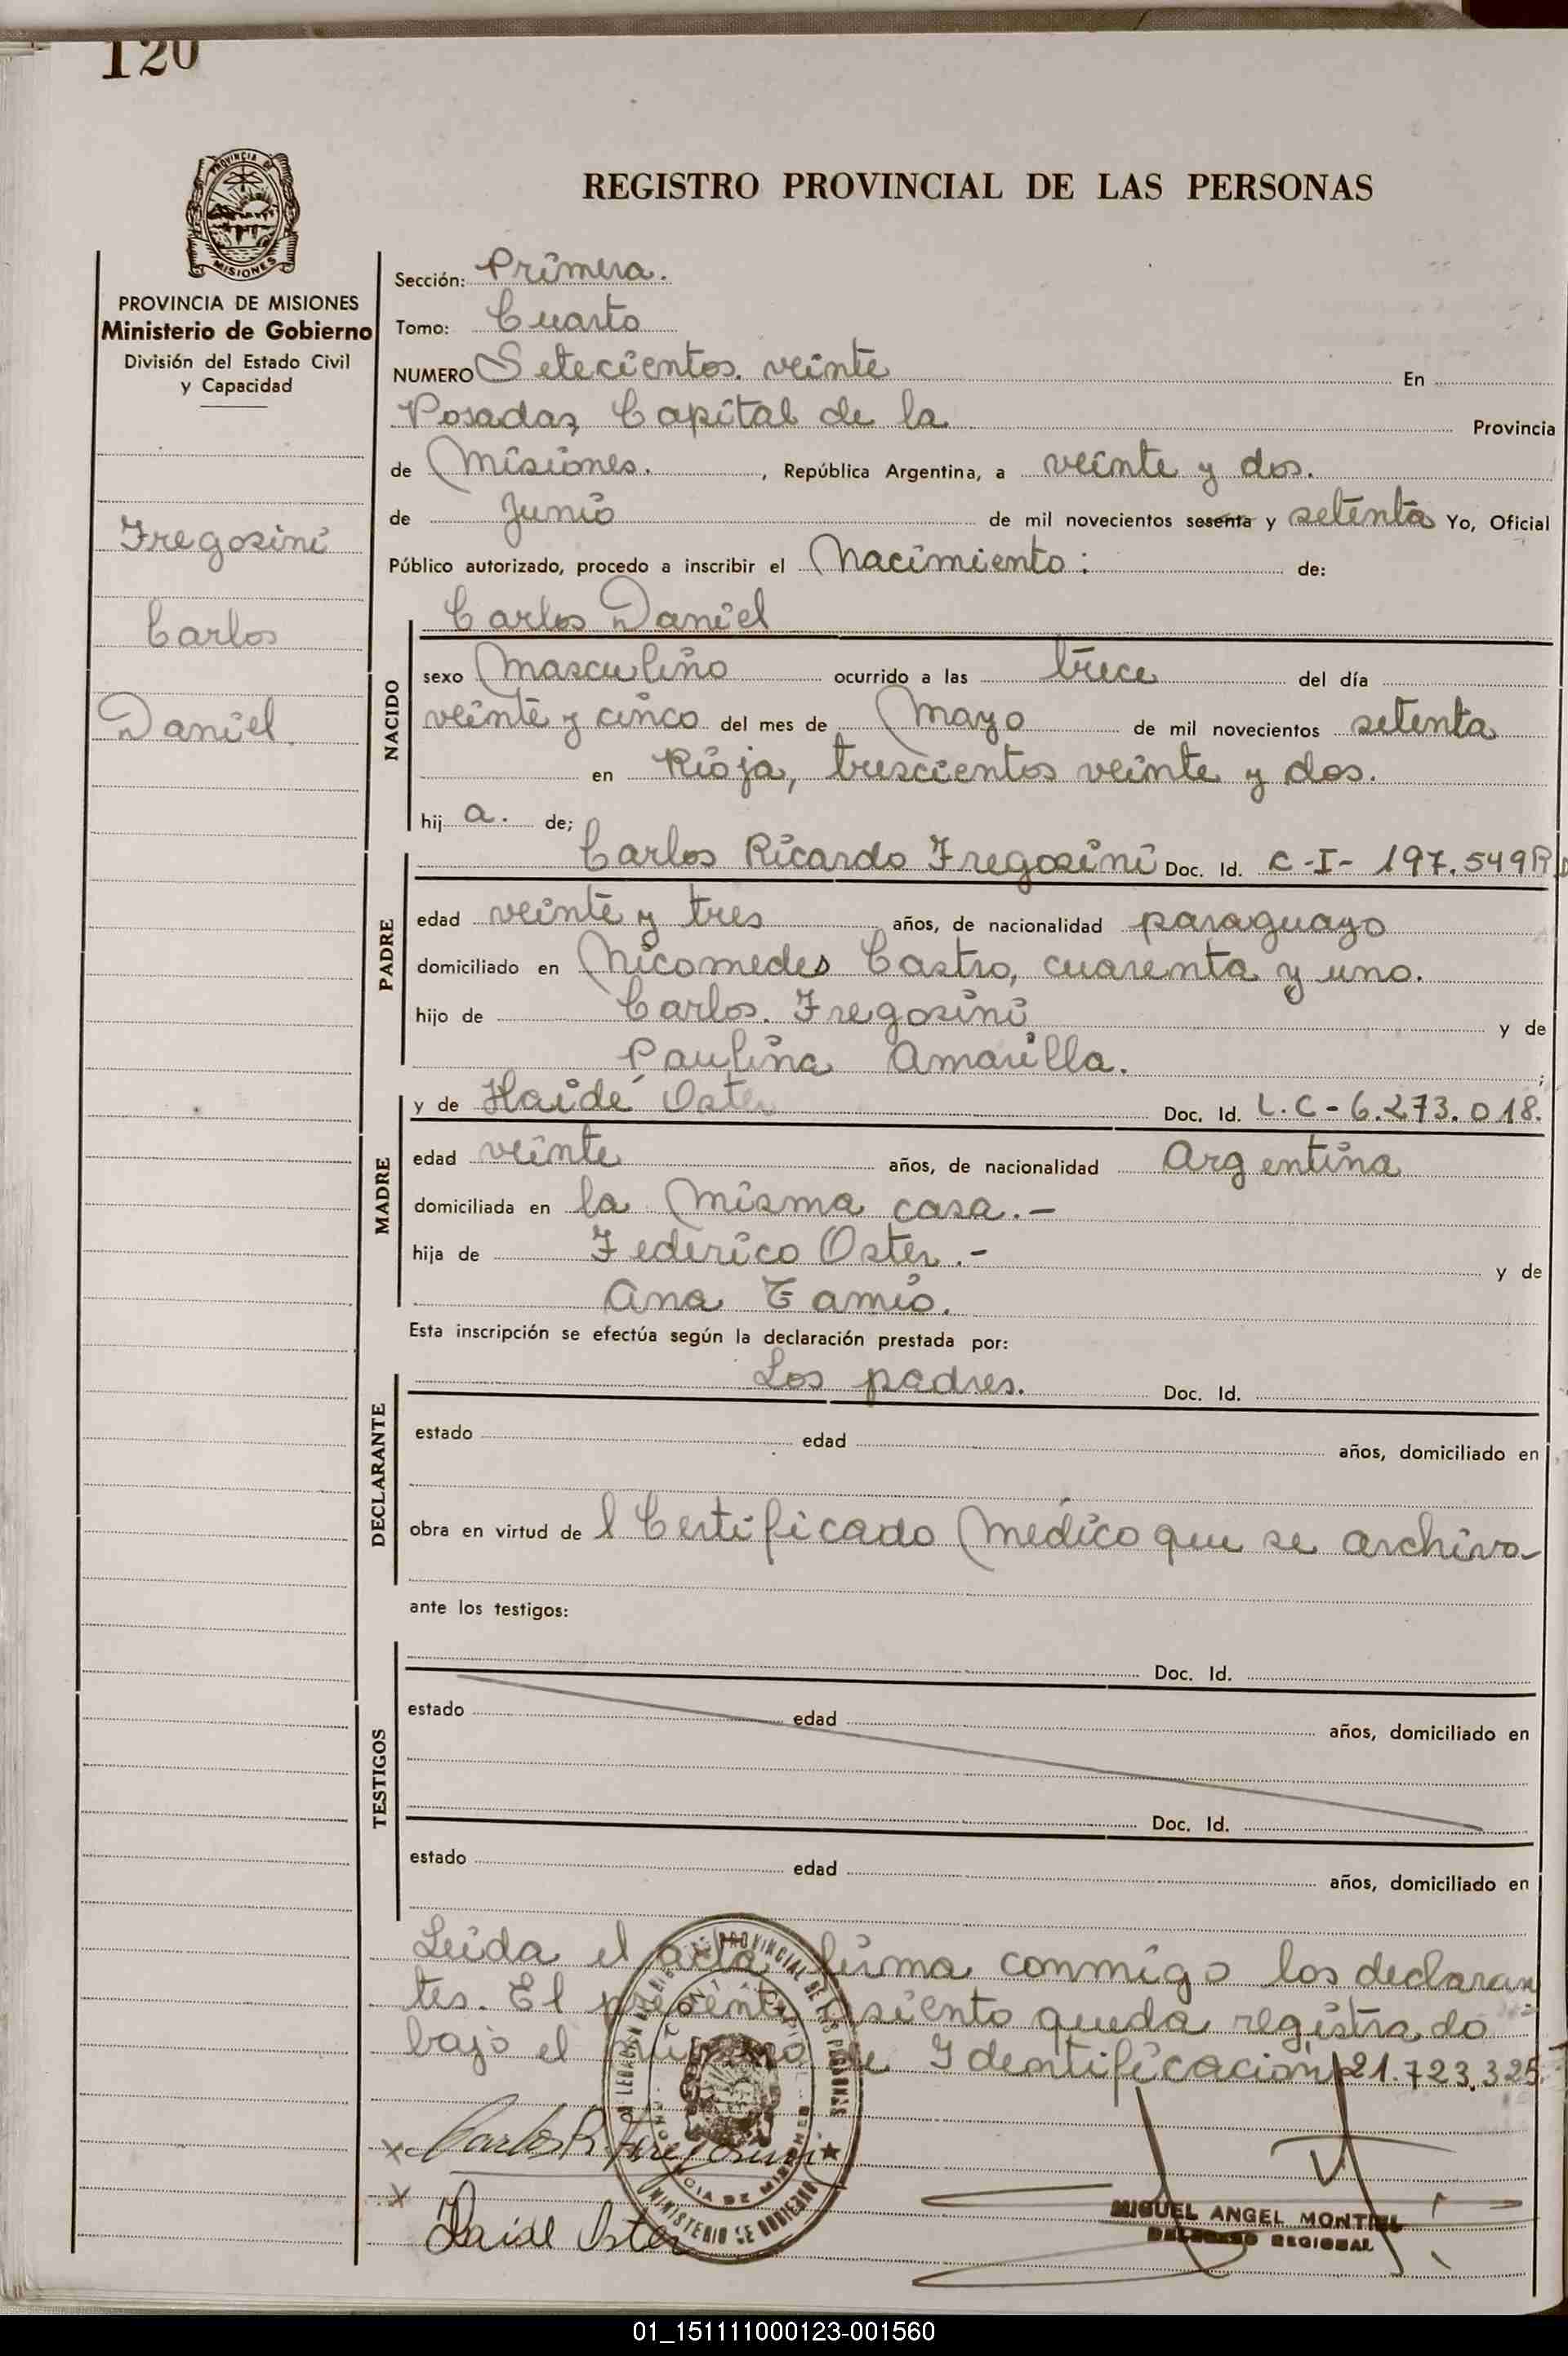 120
PROVINCIA DE MISIONES
Ministerio de Gobierno
División del Estado Civil
y Capacidad
Fregosini
Carlos
Daniel
REGISTRO PROVINCIAL DE LAS PERSONAS
Sección: Primera.
Tomo: Cuarto
NUMERO Setecientos veinte En
Posadas, Capital de la Provincia
de Misiones. , República Argentina, a veinte y dos.
de Junio de mil novecientos sesenta y setenta Yo, Oficial
Público autorizado, procedo a inscribir el Nacimiento: de:
NACIDO
Carlos Daniel
sexo Masculino ocurrido a las trece del día
veinte y cinco del mes de Mayo de mil novecientos setenta
en Rioja, trescientos veinte y dos.
hij a. de;
PADRE
Carlos Ricardo Fregosini Doc. Id. C-I- 197.549
edad veinte y tres años, de nacionalidad paraguayo
domiciliado en Nicomedes Castro, cuarenta y uno.
hijo de Carlos. Fregosini y de
Paulina Amarilla. ;
MADRE
y de Haidé Oster Doc. Id. L.C-6.273.018.
edad veinte años, de nacionalidad Argentina
domiciliada en la misma casa.-
hija de Federico Oster.- y de
Ana Tamio.
Esta inscripción se efectúa según la declaración prestada por:
DECLARANTE
Los padres. Doc. Id.
estado edad años, domiciliado en
obra en virtud de l Certificado Médico que se archiva-
ante los testigos:
TESTIGOS
Doc. Id.
estado edad años, domiciliado en
Doc. Id.
estado edad años, domiciliado en
Leida el acta firma conmigo los declaran
tes. El presente asiento queda registrado
bajo el número de Identificación 21.723.325.
x Carlos R. Fregosini
x
Haidé Oster
MIGUEL ANGEL MONTIEL
DELEGADO REGIONAL
01_151111000123-001560